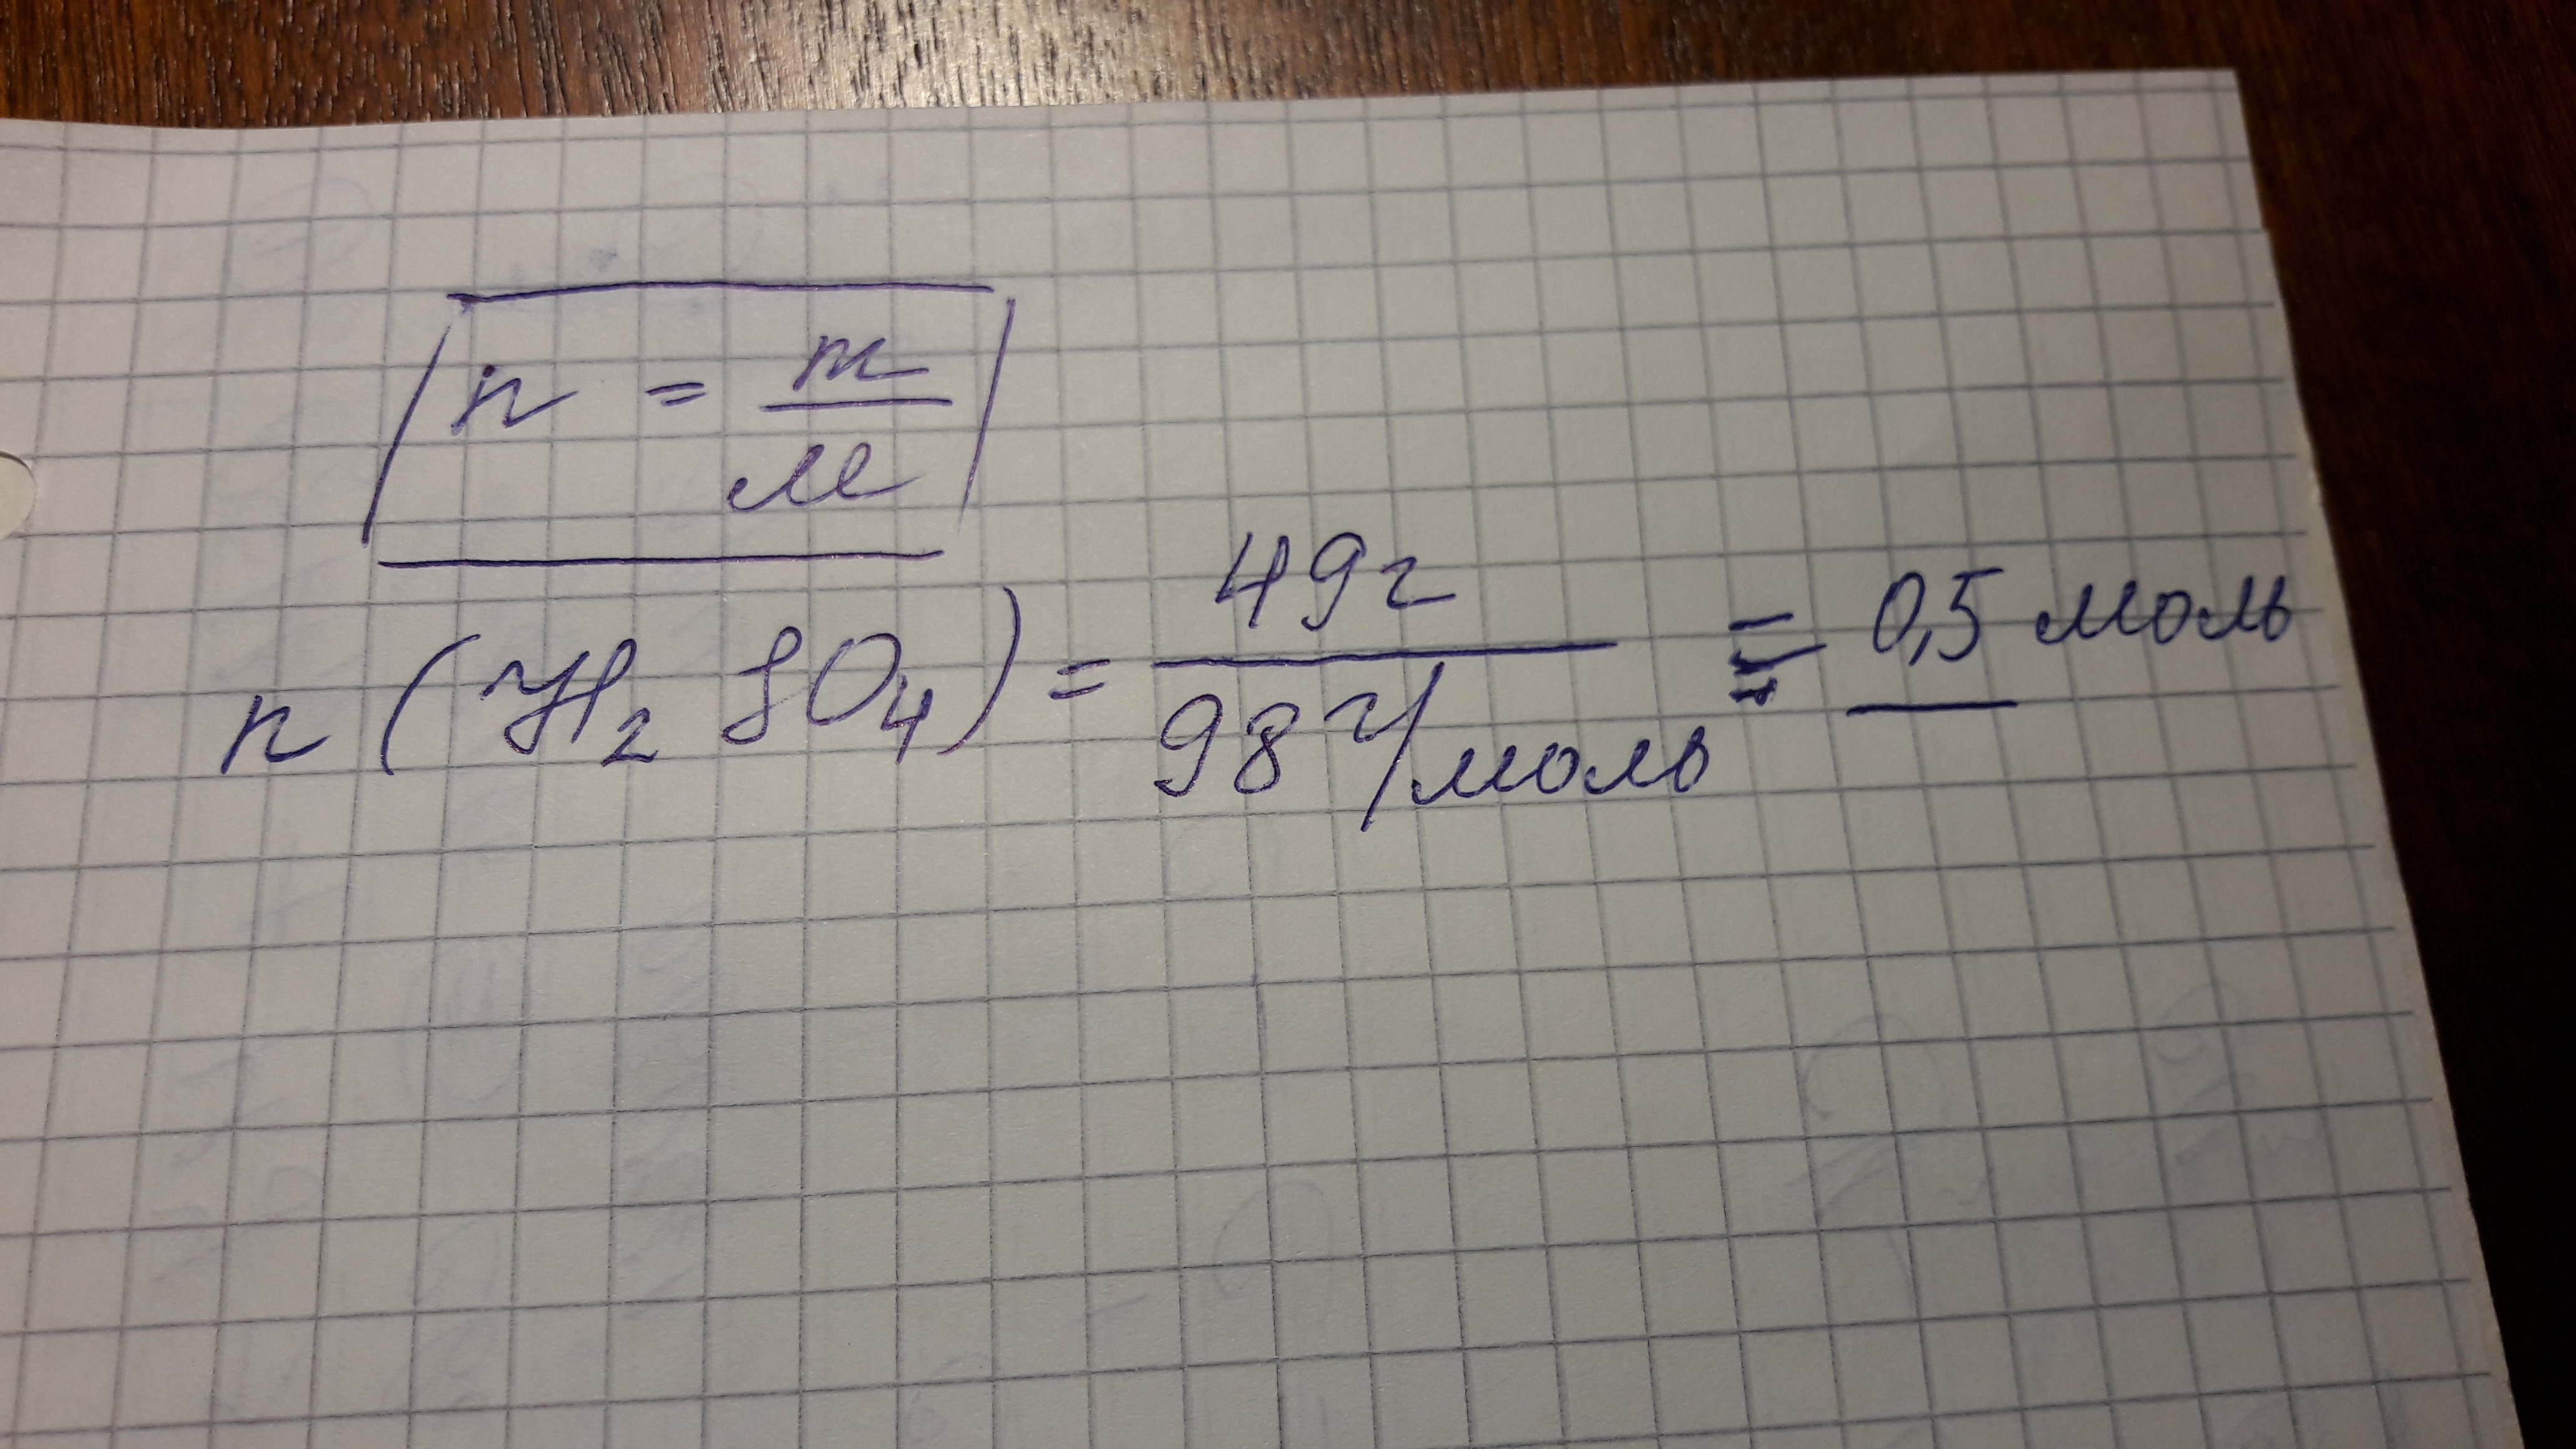 n = m/M
n (H₂SO₄) = 49г / 98 г/моль = 0,5 моль